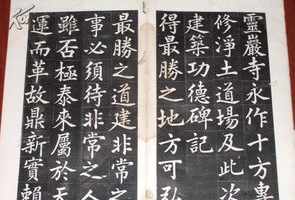 靈巖寺永作十方專
修淨土道場及此次
建築功德碑記
得最勝之地方可弘
最勝之道建非常之
事必須待非常之人
雖否極泰來屬於天
運而革故鼎新實賴